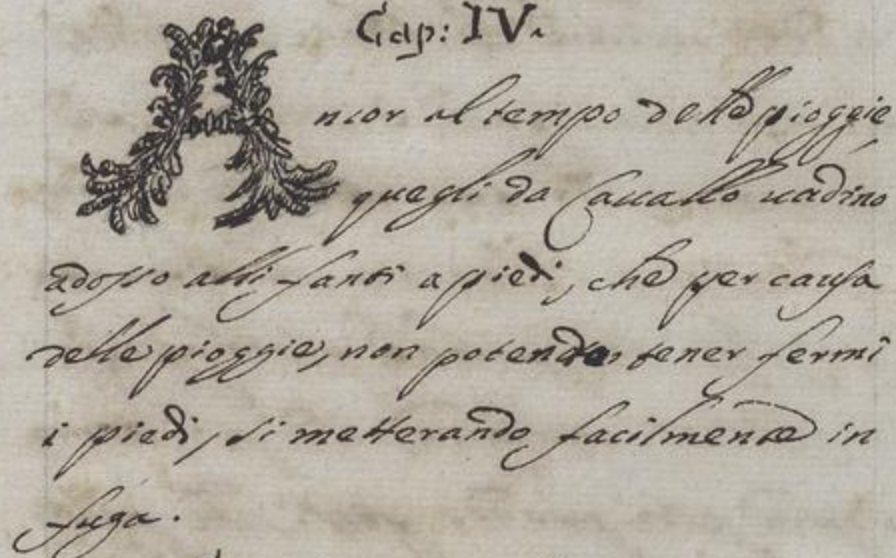 Cap: IV.
Ancor al tempo delle pioggie,
quegli da Cauallo uadino
adosso alli fanti a piedi, che per causa
delle pioggie, non potendo tener fermi
i piedi, si metterando facilmente in
fuga.